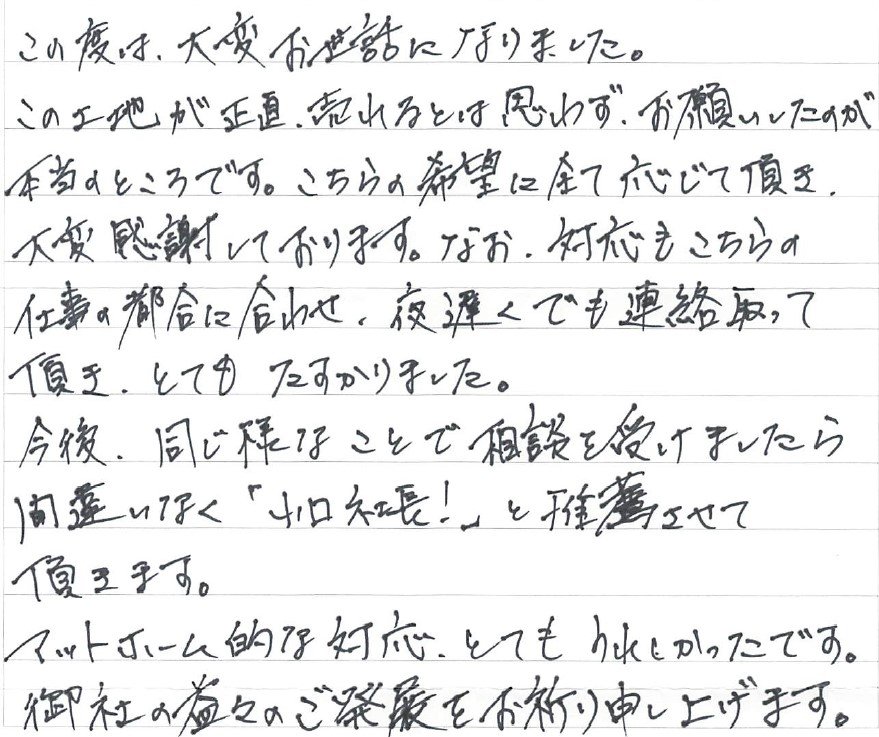 この度は、大変お世話になりました。
この土地が正直、売れるとは思わず、お願いしたのが
本当のところです。こちらの希望に全て応じて頂き、
大変感謝しております。なお、対応もこちらの
仕事の都合に合わせ、夜遅くでも連絡取って
頂き、とても たすかりました。
今後、同じ様なことで相談を受けましたら
間違いなく「小口社長!」と推薦させて
頂きます。
アットホーム的な対応、とてもうれしかったです。
御社の益々のご発展をお祈り申し上げます。